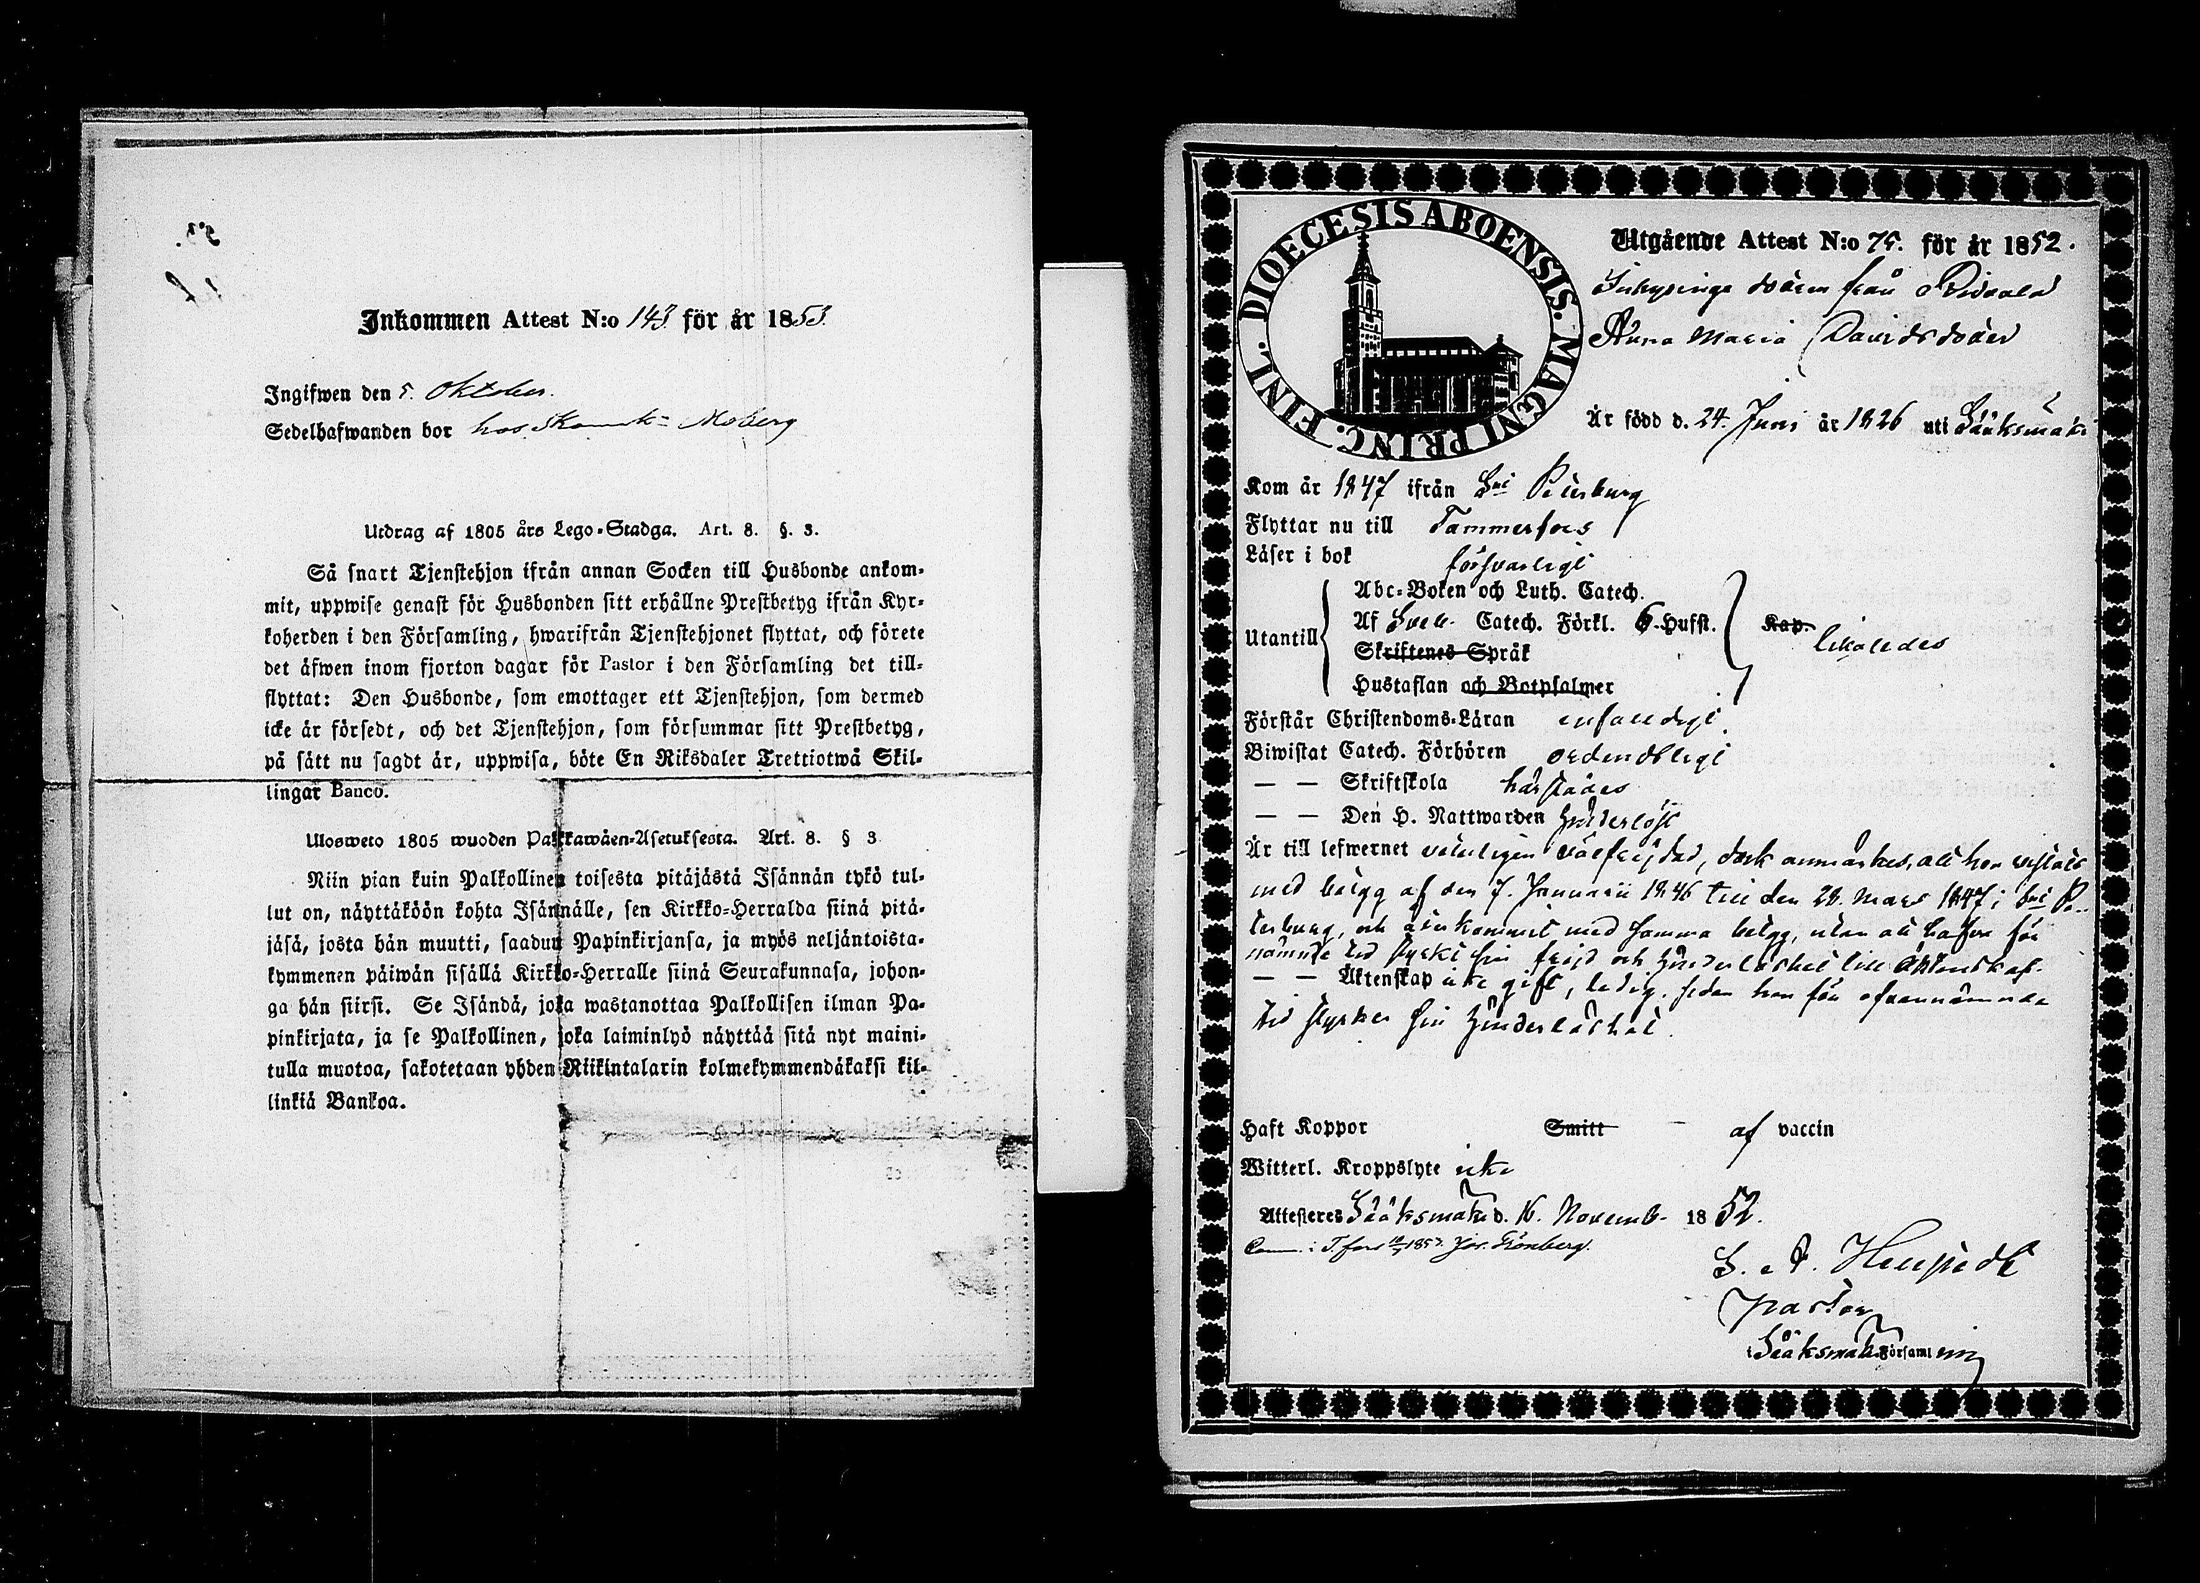 Inkommen Attest N:o 143. för år 1853.
Ingifwen den 5. Oktober.
Sedelhafwanden bor hos Moberg
Utdrag af 1805 års Lego-Stadga. Art. 8. §. 3.
Så snart Tjenstehjon ifrån annan Socken till Husbonde ankom-
mit, uppwise genast för Husbonden sitt erhållne Prestbetyg ifrån Kyr-
koherden i den Församling, hwarifrån Tjenstehjonet flyttat, och förete
det äfwen inom fjorton dagar för Pastor i den Församling det till-
flyttat: Den Husbonde, som emottager ett Tjenstehjon, som dermed
icke är försedt, och det Tjenstehjon, som försummar sitt Prestbetyg,
på sätt nu sagdt är, uppwisa, böte En Riksdaler Trettiotwå Skil-
lingar Banco.
Uloswето 1805 wuoden Palkkawäen-Asetuksesta. Art. 8. § 3
Niin pian kuin Palkollinen toisesta pitäjästä Isännän tykö tul-
lut on, näyttäköön kohta Isännälle, sen Kirkko-Herralda siinä pitä-
jäsä, josta hän muutti, saadun Papinkirjansa, ja myös neljäntoista-
kymmenen päiwän sisällä Kirkko-Herralle siinä Seurakunnasa, johon-
ga hän siirsi. Se Isändä, joka wastanottaa Palkollisen ilman Pa-
pinkirjata, ja se Palkollinen, joka laiminlyö näyttää sitä nyt maini-
tulla muotoa, sakotetaan yhden Riikintalarin kolmekymmendäkaksi kil-
linkiä Bankoa.
DIOECESIS ABOENSIS. MAGNI PRINC. FINL.
Utgående Attest N:o 75. för år 1852.
Inhysinge från
Anna Maria Davidsdoter
Är född d. 24. Juni år 1826 uti Sääksmäki
Kom år 1847 ifrån S:t Petersburg
Flyttar nu till Tammerfors
Läser i bok försvarligt
Abc-Boken och Luth. Catech.
Utantill Af Sveb. Catech. Förkl. 6-Hufst. Kap. likaledes
Skriftenes Språk
Hustaflan och Botpsalmer
Förstår Christendoms-Läran enfaldigt
Biwistat Catech. Förhören ordentligt
— — Skriftskola härstädes
— — Den H. Nattwarden hinderlöst
Är till lefwernet väfrejdad, dock anmärkes, att hon vistats
med betyg af den 7. Januarii 1846 till den 28. Mars 1847 i S:t Pe-
tersburg, och återkommit med samma betyg, utan att hafva för
nämnde tid styrkt sin frejd och hinderlöshet till äktenskap.
— — Äktenskap icke gift, ledig, sedan hon för ofvannämnde
tid styrker sin hinderlöshet.
Haft Koppor Smitt af vaccin
Witterl. Kroppslyte icke
Attesteres Sääksmäki d. 16. Novemb. 1852.
Comm. i T.fors 1853.
pastor
i Sääksmäki Församling